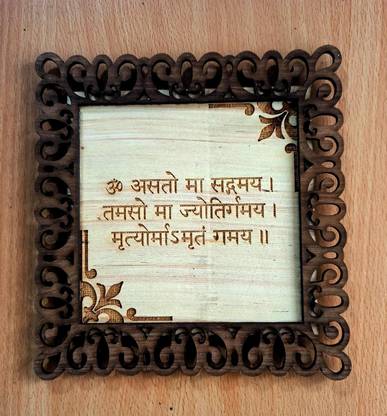 ॐ असतो मा सद्गमय ।
तमसो मा ज्योतिर्गमय ।
मृत्योर्माऽमृतं गमय ॥